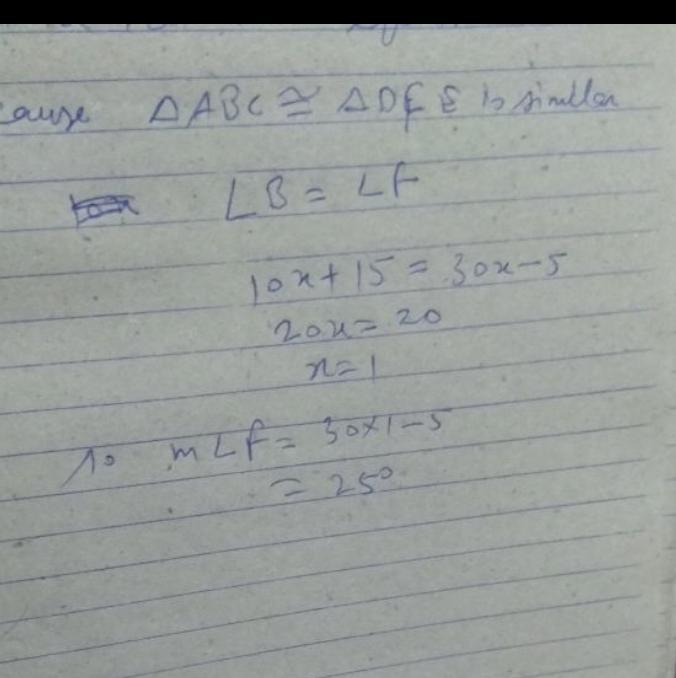 cause ΔABC ≅ ΔDFE is similar
∠B = ∠F
10x + 15 = 30x - 5
20x = 20
x = 1
So m∠F = 30×1-5
= 25°